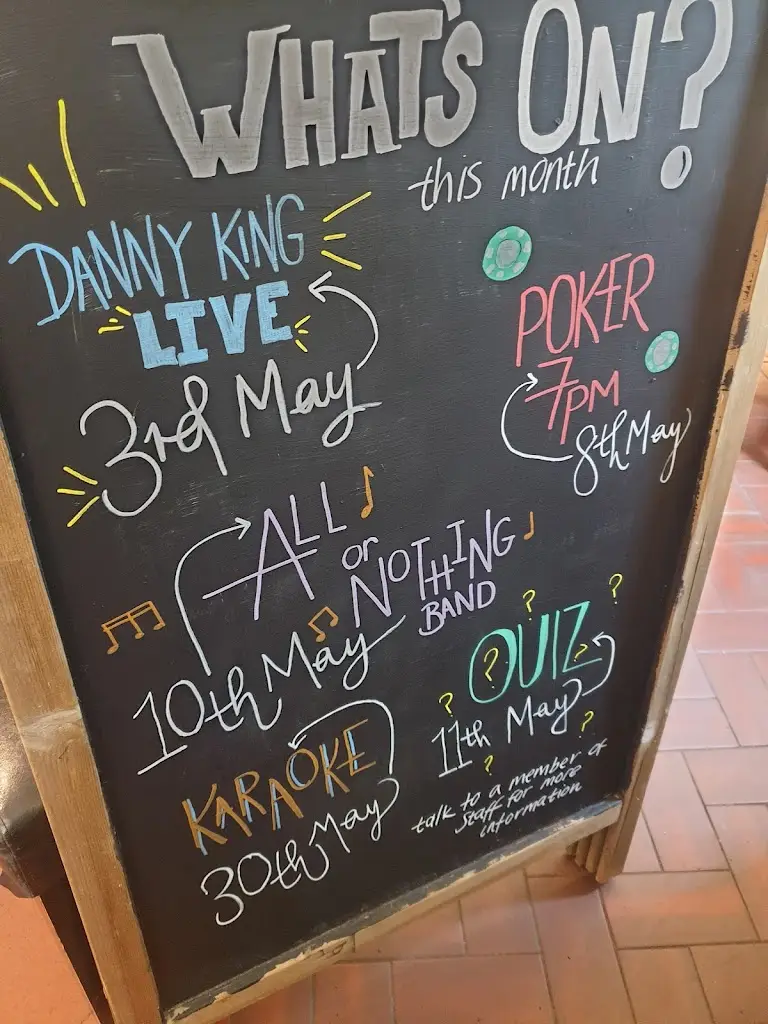 WHAT'S ON?
this month
DANNY KING
LIVE
3rd May
POKER
7PM
8th May
ALL
or
NOTHING
BAND
10th May
QUIZ
11th May
KARAOKE
30th May
talk to a member of
staff for more
information